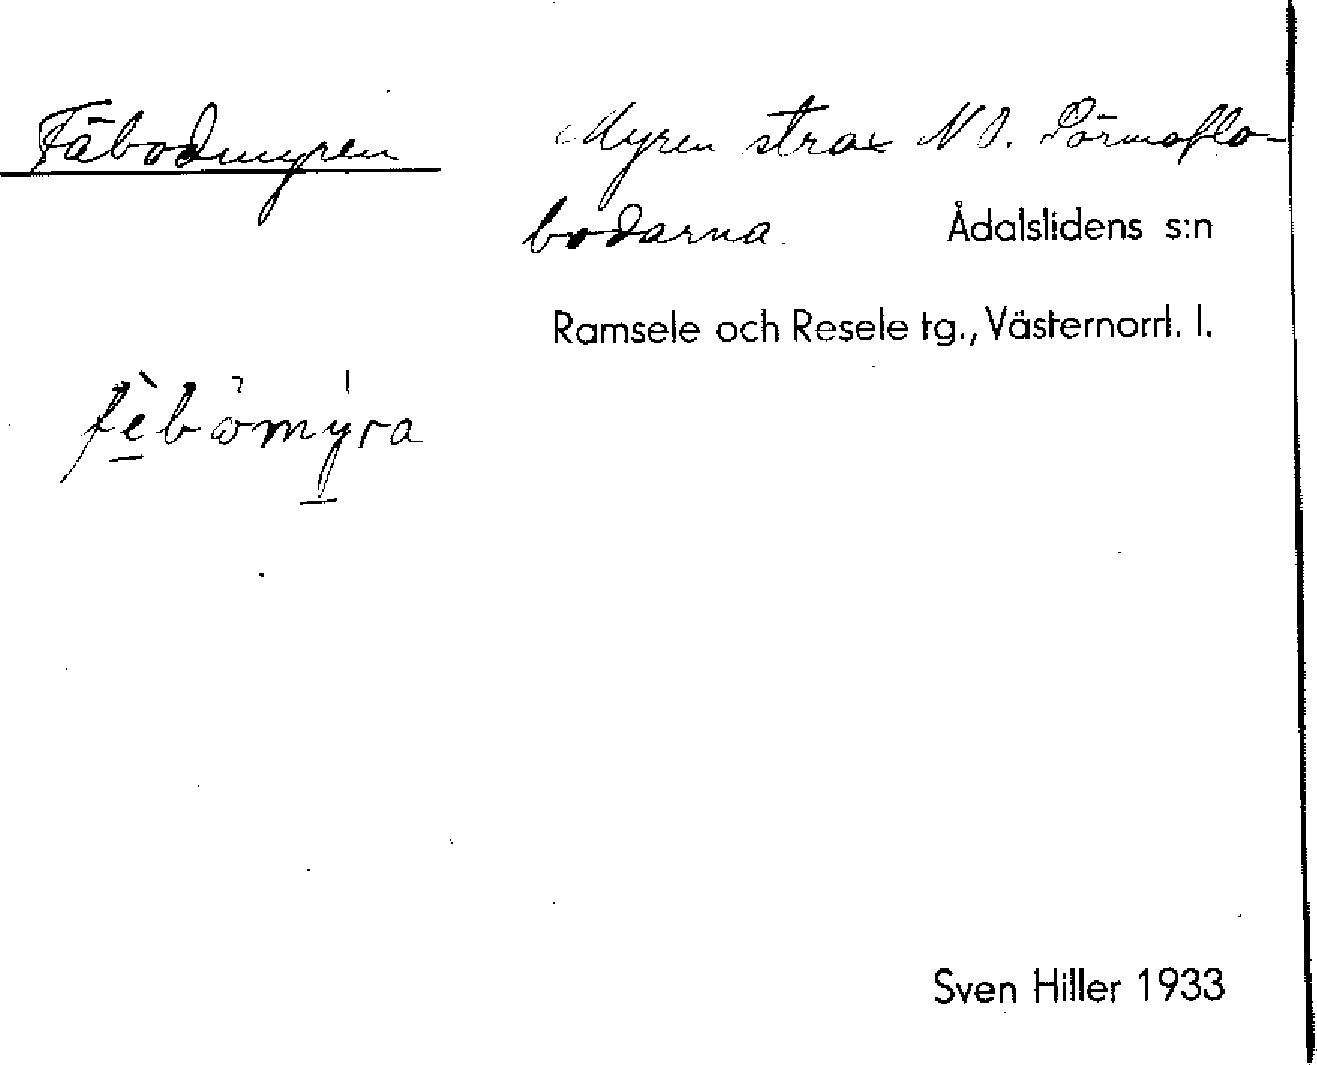 Fäbodmyren
Myren strax NO. Pärmaflo-
bodarna. Ådalslidens s:n
Ramsele och Resele tg., Västernorrl. l.
fèbòmýra
Sven Hiller 1933